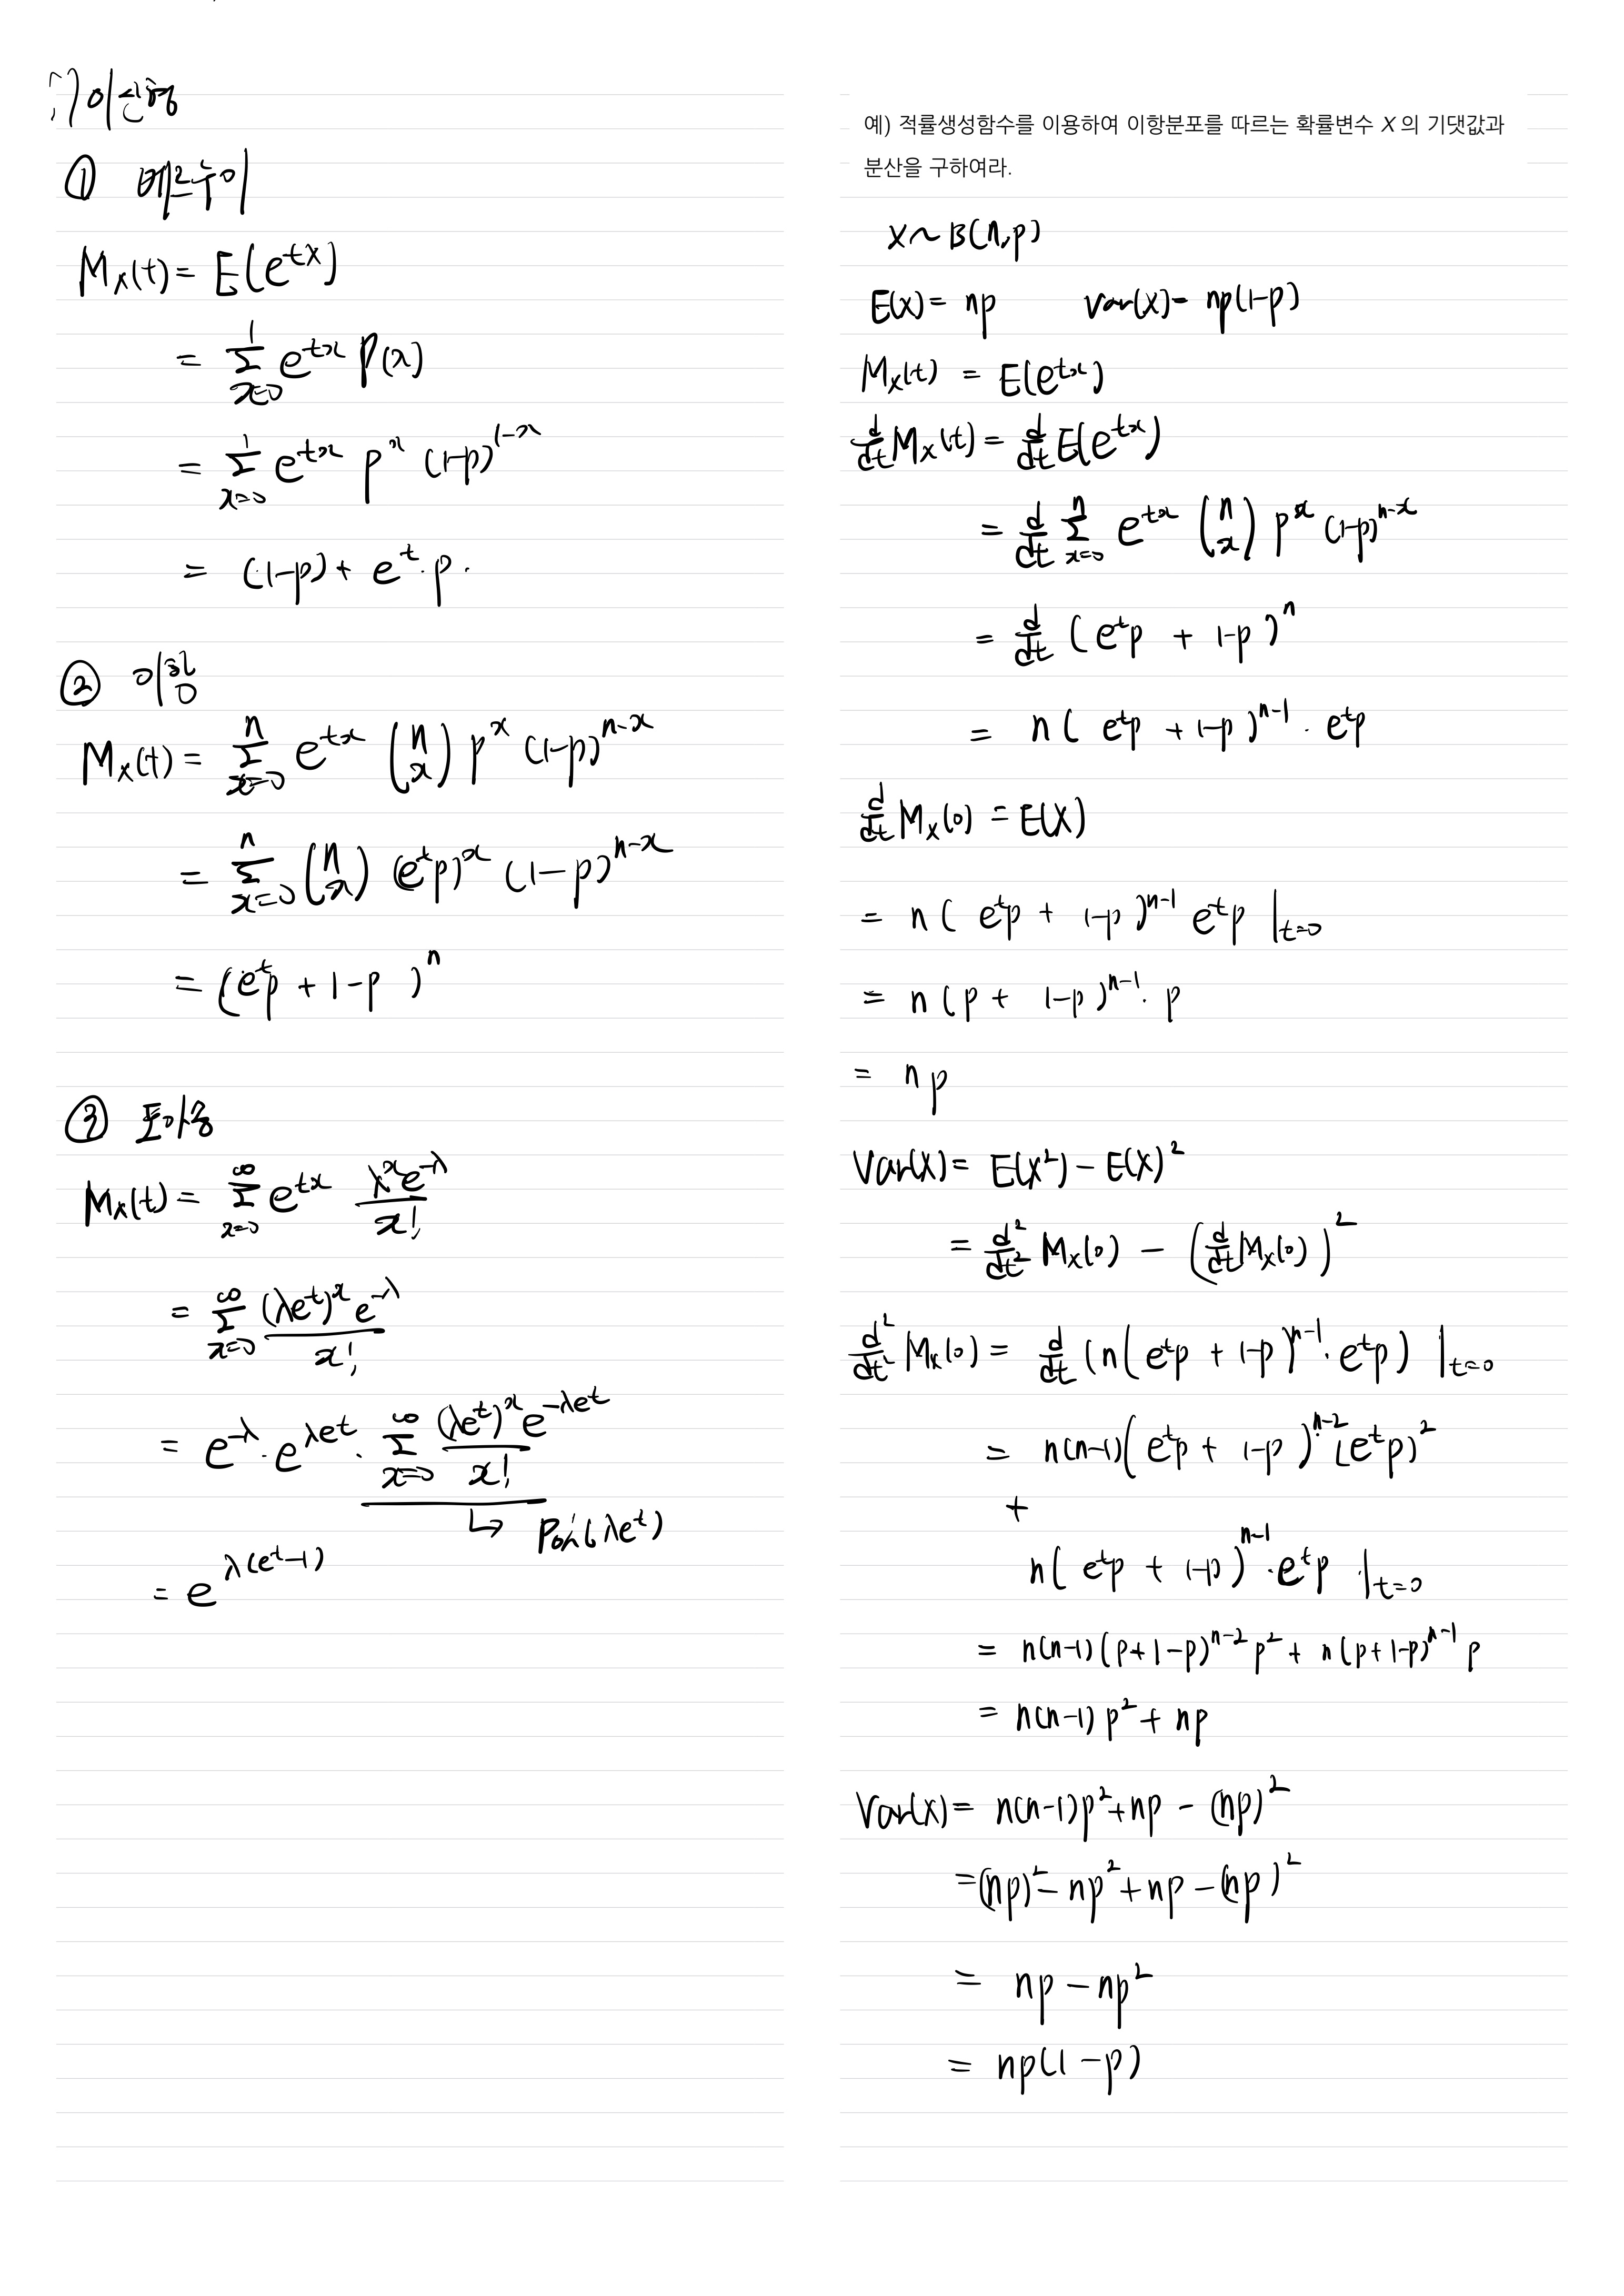 이산형
① 베르누이
M_X(t) = E(e^{tX})
= \sum_{x=0}^{1} e^{tx} P(x)
= \sum_{x=0}^{1} e^{tx} p^x (1-p)^{1-x}
= (1-p) + e^t · p.
② 이항
M_X(t) = \sum_{x=0}^{n} e^{tx} \binom{n}{x} p^x (1-p)^{n-x}
= \sum_{x=0}^{n} \binom{n}{x} (e^t p)^x (1-p)^{n-x}
= (e^t p + 1-p)^n
③ 포아송
M_X(t) = \sum_{x=0}^{∞} e^{tx} \frac{λ^x e^{-λ}}{x!}
= \sum_{x=0}^{∞} \frac{(λe^t)^x e^{-λ}}{x!}
= e^{-λ} · e^{λe^t} · \sum_{x=0}^{∞} \frac{(λe^t)^x e^{-λe^t}}{x!}
↳ Poi(λe^t)
= e^{λ(e^t-1)}
예) 적률생성함수를 이용하여 이항분포를 따르는 확률변수 X의 기댓값과
분산을 구하여라.
X ~ B(n,p)
E(X) = np Var(X) = np(1-p)
M_X(t) = E(e^{tx})
\frac{d}{dt} M_X(t) = \frac{d}{dt} E(e^{tx})
= \frac{d}{dt} \sum_{x=0}^{n} e^{tx} \binom{n}{x} p^x (1-p)^{n-x}
= \frac{d}{dt} (e^t p + 1-p)^n
= n(e^t p + 1-p)^{n-1} · e^t p
\frac{d}{dt} M_X(0) = E(X)
= n(e^t p + 1-p)^{n-1} e^t p |_{t=0}
= n(p + 1-p)^{n-1} · p
= np
Var(X) = E(X^2) - E(X)^2
= \frac{d^2}{dt^2} M_X(0) - (\frac{d}{dt} M_X(0))^2
\frac{d^2}{dt^2} M_X(0) = \frac{d}{dt} (n(e^t p + 1-p)^{n-1} · e^t p) |_{t=0}
= n(n-1)(e^t p + 1-p)^{n-2} (e^t p)^2
+
n(e^t p + 1-p)^{n-1} · e^t p |_{t=0}
= n(n-1)(p+1-p)^{n-2} p^2 + n(p+1-p)^{n-1} p
= n(n-1)p^2 + np
Var(X) = n(n-1)p^2 + np - (np)^2
= (np)^2 - np^2 + np - (np)^2
= np - np^2
= np(1-p)